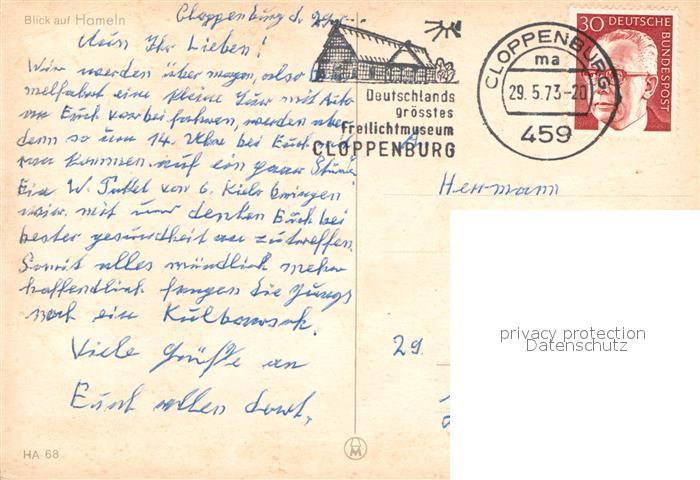 Blick auf Hameln
Cloppenburg d. 29.5.
Nun Ihr Lieben!
Wir werden über magen, also
melfahrt eine kleine Tour mit Auto
an Euch vorbei fahren, werden aber
denn so um 14. Uhr bei Euch
ran kommen auf ein paar Stunde
Ein W. Puttel von 6. Kielo bringen
wir mit und denken Euch bei
bester gesundheit an zutreffen.
Somit alles mündlich mehr
haffendlich fangen die Jungs
noch ein
Viele Grüße an
Euch allen dort.
HA 68
Deutschlands
grösstes
Freilichtmuseum
CLOPPENBURG
CLOPPENBURG
ma
29.5.73-20
459
30 DEUTSCHE
BUNDESPOST
Herrmann
29.
privacy protection
Datenschutz